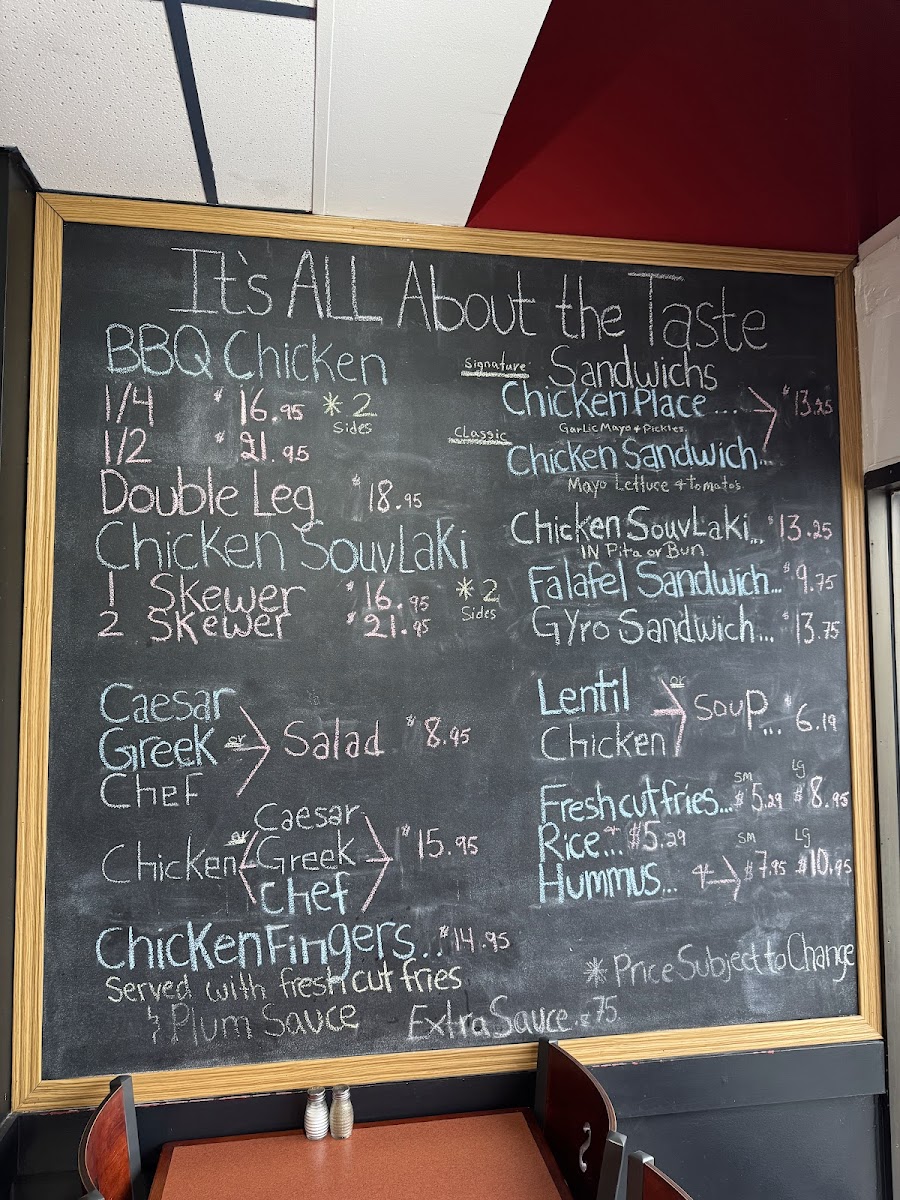 It's ALL About the Taste
BBQ Chicken
1/4 $16.95 * 2
Sides
1/2 $21.95
Double Leg $18.95
Chicken SouvLaki
1 Skewer $16.95 * 2
Sides
2 Skewer $21.95
Caesar
Greek or Salad $8.95
Chef
Caesar
Chicken or Greek $15.95
Chef
Chicken Fingers... $14.95
Served with fresh cut fries
& Plum Sauce Extra Sauce .75
Signature Sandwichs
Chicken Place ... $13.25
Garlic Mayo + Pickles
Classic
Chicken Sandwich...
Mayo Lettuce + tomato's
Chicken SouvLaki... $13.25
IN Pita or Bun
Falafel Sandwich... $9.75
Gyro Sandwich... $13.75
Lentil or Soup... $6.19
Chicken
SM LG
Fresh cut fries... $5.29 $8.95
Rice... $5.29
SM LG
Hummus... $7.95 $10.95
* Price Subject to Change